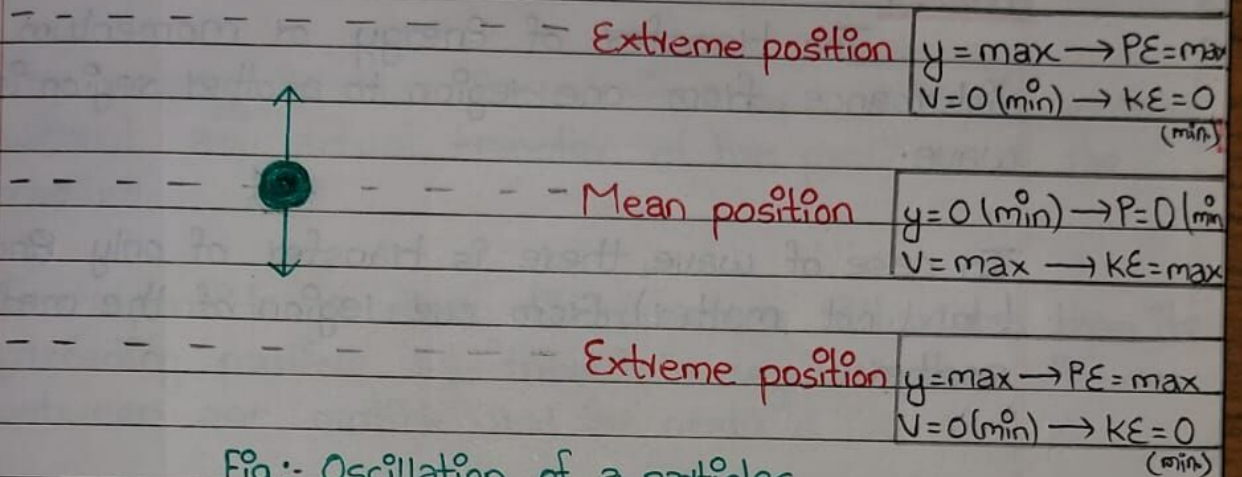 Extreme position
y = max → PE = max
V = 0 (min) → KE = 0
(min)
Mean position
y = 0 (min) → P = 0 (min
V = max → KE = max
Extreme position
y = max → PE = max
V = 0 (min) → KE = 0
(min)
Fig :- Oscillation of a particles